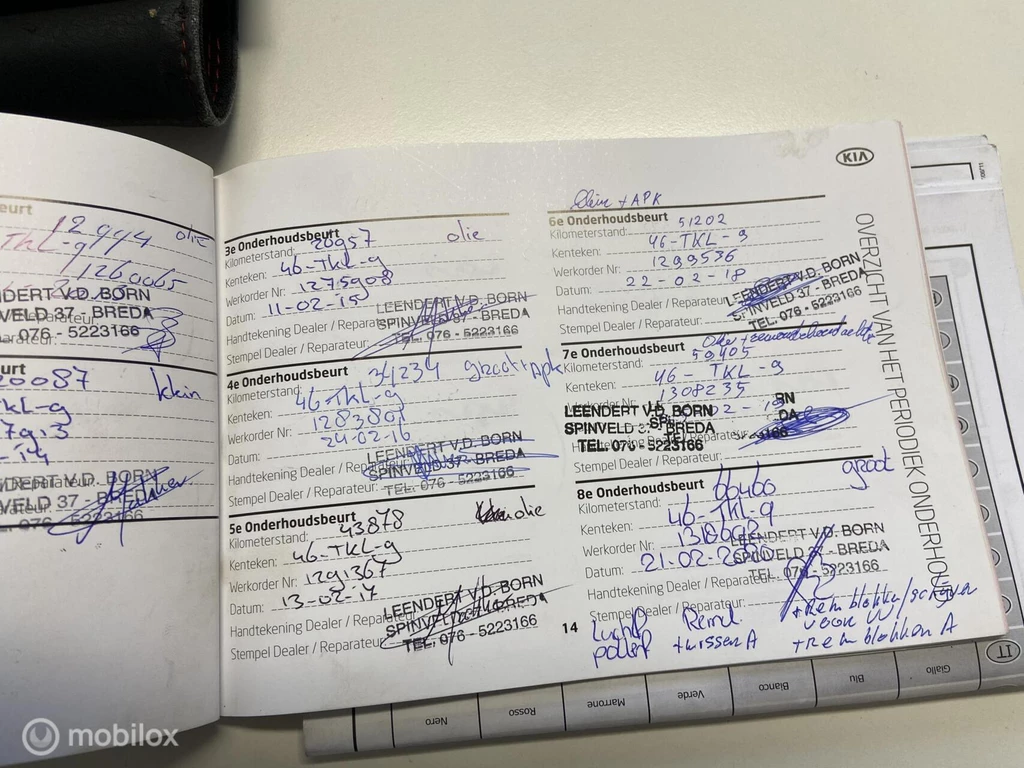 eurt
12994 olie
TKL-g
1260065
NDERT V.D. BORN
NVELD 37 - BREDA
076 - 5223166
urt
20087 klein
KL-g
NVELD 37 - BREDA
076 - 5223166
3e Onderhoudsbeurt olie
Kilometerstand: 20957
Kenteken: 46-TKL-g
Werkorder Nr: 1275908
Datum: 11-02-15
Handtekening Dealer / Reparateur:
Stempel Dealer / Reparateur:
LEENDERT V.D. BORN
SPINVELD 37 - BREDA
TEL. 076 - 5223166
4e Onderhoudsbeurt 34234 groot + Apk
Kilometerstand:
Kenteken: 46-TKL-g
Werkorder Nr: 1283801
Datum: 24-02-16
Handtekening Dealer / Reparateur:
Stempel Dealer / Reparateur:
LEENDERT V.D. BORN
SPINVELD 37 - BREDA
TEL. 076 - 5223166
5e Onderhoudsbeurt olie
Kilometerstand: 43878
Kenteken: 46-TKL-g
Werkorder Nr: 1291367
Datum: 13-02-17
Handtekening Dealer / Reparateur:
Stempel Dealer / Reparateur:
LEENDERT V.D. BORN
SPINVELD 37 - BREDA
TEL. 076 - 5223166
14
KIA
+ APK
6e Onderhoudsbeurt
Kilometerstand: 51202
Kenteken: 46-TKL-9
Werkorder Nr: 1299536
Datum: 22-02-18
Handtekening Dealer / Reparateur:
Stempel Dealer / Reparateur:
LEENDERT V.D. BORN
SPINVELD 37 - BREDA
TEL. 076 - 5223166
7e Onderhoudsbeurt
Kilometerstand: 59405
Kenteken: 46-TKL-9
Werkorder Nr: 1308235
LEENDERT V.D. BORN
SPINVELD 37 - BREDA
TEL. 076 - 5223166
Stempel Dealer / Reparateur:
8e Onderhoudsbeurt 66460 groot
Kilometerstand:
Kenteken: 46-TKL-g
Werkorder Nr:
Datum: 21-02-
Handtekening Dealer / Reparateur:
Stempel Dealer / Reparateur:
LEENDERT V.D. BORN
SPINVELD 37 - BREDA
TEL. 076 - 5223166
+ Remblokken/schijven
voor
+ Remblokken A
OVERZICHT VAN HET PERIODIEK ONDERHOUD
IT
Nero
Rosso
Marrone
Verde
Bianco
Blu
Giallo
mobilox